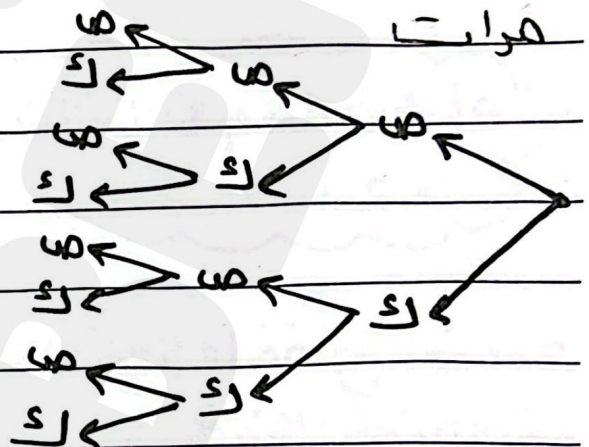 مرات
ص
ص
ك
ص
ص
ك
ك
ص
ص
ك
ك
ص
ك
ك